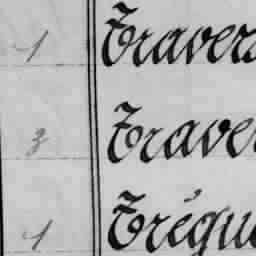 1 Travers
3 Traver
1 Trégu